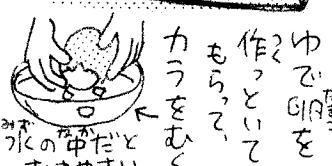 ゆで卵を
作っといて
もらって、
カラをむく
水の中だと